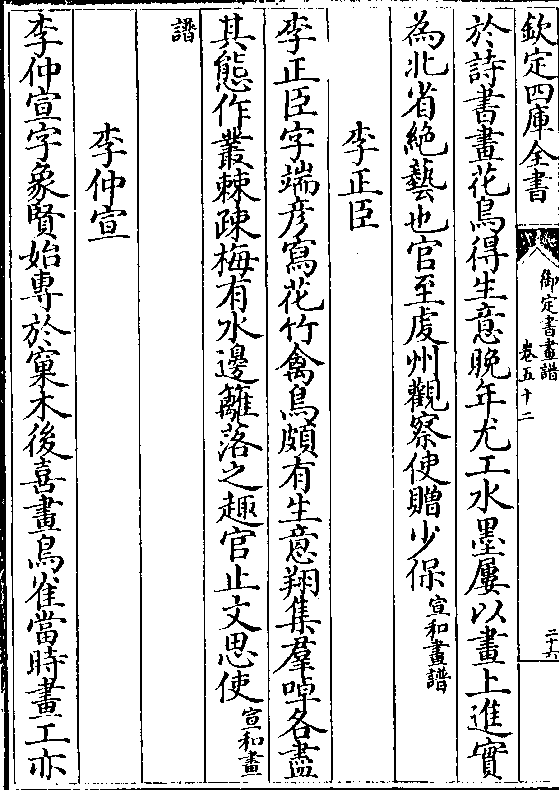 欽定四庫全書
御定書畫譜
卷五十二
二十六
於詩書畫花鳥得生意晩年尤工水墨屢以畫上進實
為北省絶藝也官至虔州觀察使贈少保宣和畫譜
李正臣
李正臣字端彦寫花竹禽鳥頗有生意翔集羣啅各盡
其態作叢棘疎梅有水邊籬落之趣官止文思使宣和畫
譜
李仲宣
李仲宣字象賢始専於窠木後喜畫鳥雀當時畫工亦